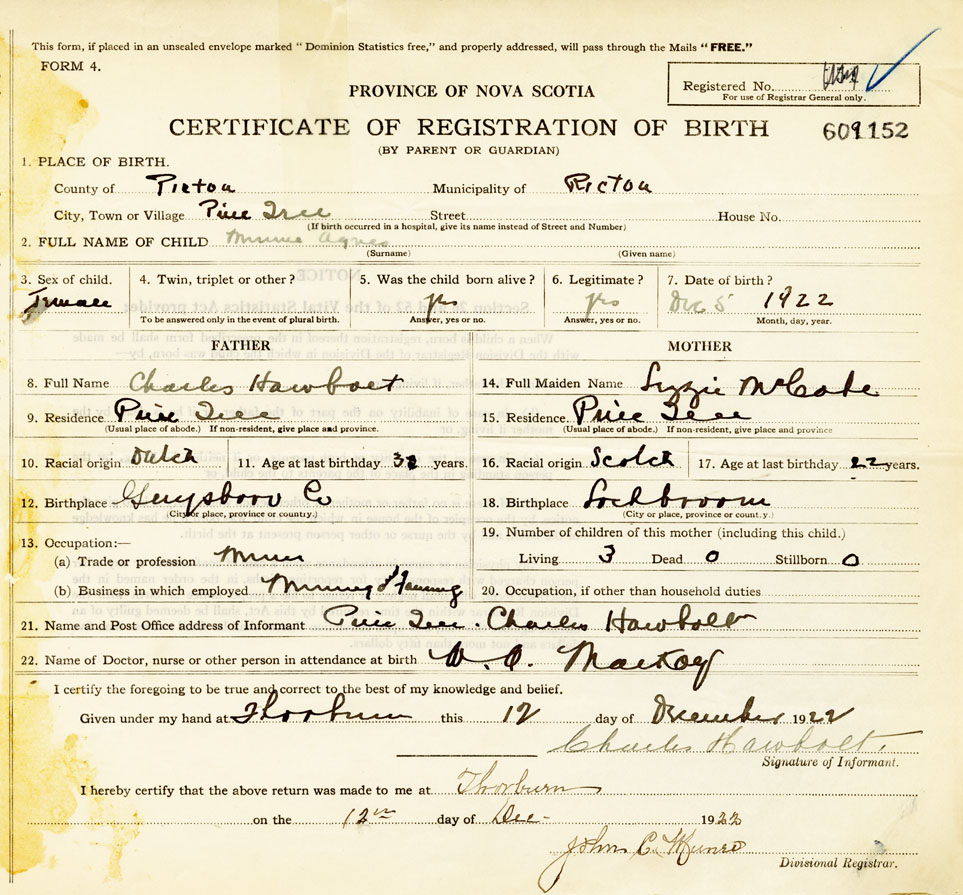 This form, if placed in an unsealed envelope marked " Dominion Statistics free," and properly addressed, will pass through the Mails "FREE."
FORM 4.
Registered No.
For use of Registrar General only.
PROVINCE OF NOVA SCOTIA
CERTIFICATE OF REGISTRATION OF BIRTH 609152
(BY PARENT OR GUARDIAN)
1. PLACE OF BIRTH.
County of Pictou Municipality of Pictou
City, Town or Village Pine Tree Street House No.
(If birth occurred in a hospital, give its name instead of Street and Number)
2. FULL NAME OF CHILD Minnie Agnes
(Surname) (Given name)
3. Sex of child. 4. Twin, triplet or other? 5. Was the child born alive? 6. Legitimate? 7. Date of birth?
Female yes yes Dec 5 1922
To be answered only in the event of plural birth. Answer, yes or no. Answer, yes or no. Month, day, year.
FATHER MOTHER
8. Full Name Charles Hawbolt 14. Full Maiden Name Lizzie McCabe
9. Residence Pine Tree 15. Residence Pine Tree
(Usual place of abode.) If non-resident, give place and province. (Usual place of abode.) If non-resident, give place and province
10. Racial origin Dutch 11. Age at last birthday 32 years. 16. Racial origin Scotch 17. Age at last birthday 22 years.
12. Birthplace Guysboro Co 18. Birthplace Lochbroom
(City or place, province or country.) (City or place, province or county.)
13. Occupation:— 19. Number of children of this mother (including this child.)
(a) Trade or profession Miner Living 3 Dead 0 Stillborn 0
(b) Business in which employed Mining & Farming 20. Occupation, if other than household duties
21. Name and Post Office address of Informant Pine Tree. Charles Hawbolt
22. Name of Doctor, nurse or other person in attendance at birth
I certify the foregoing to be true and correct to the best of my knowledge and belief.
Given under my hand at Thorburn this 12 day of December 1922
Charles Hawbolt.
Signature of Informant.
I hereby certify that the above return was made to me at Thorburn
on the 12th day of Dec- 1922
John C. Munro
Divisional Registrar.